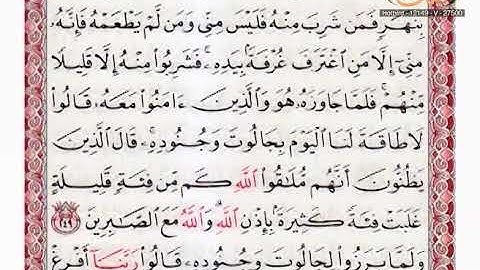 Hotbird - 12149 - V - 27500
بِنَهَرٍ فَمَن شَرِبَ مِنْهُ فَلَيْسَ مِنِّى وَمَن لَّمْ يَطْعَمْهُ فَإِنَّهُۥ
مِنِّىٓ إِلَّا مَنِ ٱغْتَرَفَ غُرْفَةًۢ بِيَدِهِۦ ۚ فَشَرِبُوا۟ مِنْهُ إِلَّا قَلِيلًا
مِّنْهُمْ ۚ فَلَمَّا جَاوَزَهُۥ هُوَ وَٱلَّذِينَ ءَامَنُوا۟ مَعَهُۥ قَالُوا۟
لَا طَاقَةَ لَنَا ٱلْيَوْمَ بِجَالُوتَ وَجُنُودِهِۦ ۚ قَالَ ٱلَّذِينَ
يَظُنُّونَ أَنَّهُم مُّلَـٰقُوا۟ ٱللَّهِ كَم مِّن فِئَةٍ قَلِيلَةٍ
غَلَبَتْ فِئَةً كَثِيرَةًۢ بِإِذْنِ ٱللَّهِ ۗ وَٱللَّهُ مَعَ ٱلصَّـٰبِرِينَ ﴿٢٤٩﴾
وَلَمَّا بَرَزُوا۟ لِجَالُوتَ وَجُنُودِهِۦ قَالُوا۟ رَبَّنَآ أَفْرِغْ